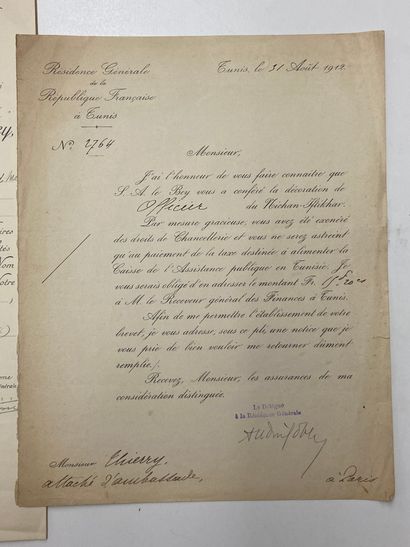 Résidence Générale
de la
République Française
à Tunis
Tunis, le 31 Août 1912
N° 2764
Monsieur,
J'ai l'honneur de vous faire connaître que
S. A. le Bey vous a conféré la décoration de
Officier du Nichan-Iftikhar.
Par mesure gracieuse, vous avez été exonéré
des droits de Chancellerie et vous ne serez astreint
qu'au paiement de la taxe destinée à alimenter la
Caisse de l'Assistance publique en Tunisie. Je
vous serais obligé d'en adresser le montant Fr.
à M. le Receveur général des Finances à Tunis.
Afin de me permettre l'établissement de votre
brevet, je vous adresse, sous ce pli, une notice que je
vous prie de bien vouloir me retourner dûment
remplie./.
Recevez, Monsieur, les assurances de ma
considération distinguée.
Le Délégué
à la Résidence Générale
Monsieur Thierry,
attaché d'ambassade,
à Paris